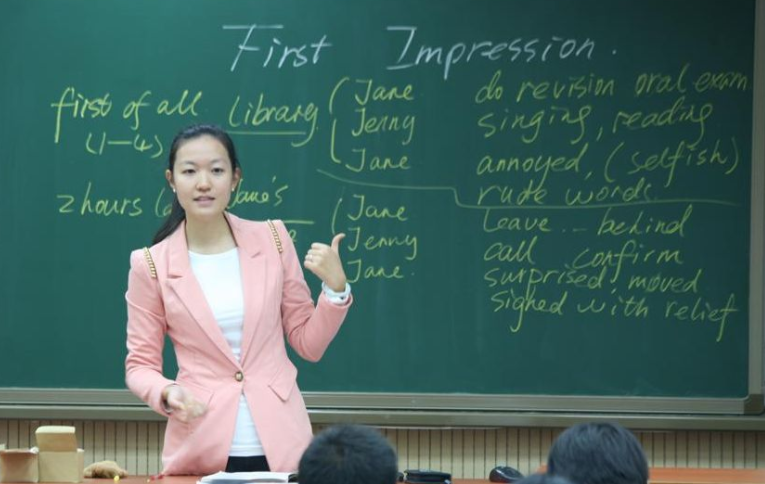 First Impression.
first of all library Jane do revision oral exam
(1-4) Jenny singing, reading
Jane annoyed, (selfish)
rude words
2 hours Jane's Jane leave... behind
Jenny call confirm
Jane. surprised moved
signed with relief